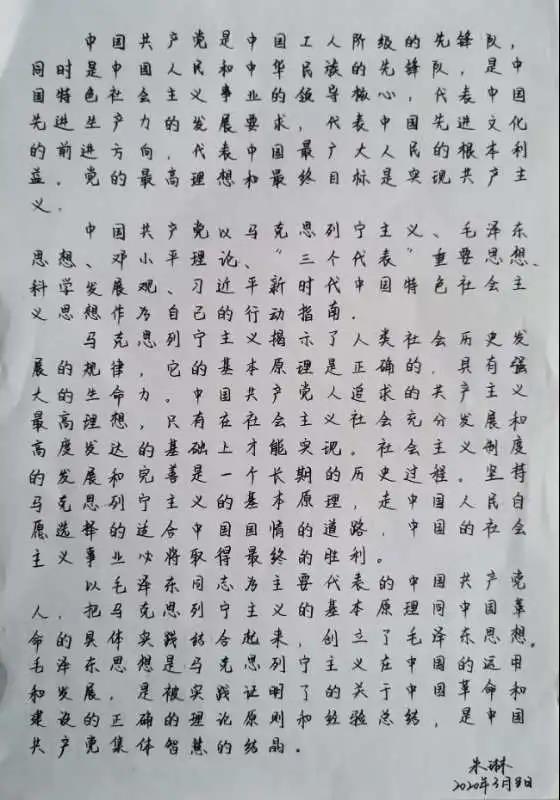 中国共产党是中国工人阶级的先锋队，
同时是中国人民和中华民族的先锋队，是中
国特色社会主义事业的领导核心，代表中国
先进生产力的发展要求，代表中国先进文化
的前进方向，代表中国最广大人民的根本利
益。党的最高理想和最终目标是实现共产主
义。
中国共产党以马克思列宁主义、毛泽东
思想、邓小平理论、“三个代表”重要思想、
科学发展观、习近平新时代中国特色社会主
义思想作为自己的行动指南。
马克思列宁主义揭示了人类社会历史发
展的规律，它的基本原理是正确的，具有强
大的生命力。中国共产党人追求的共产主义
最高理想，只有在社会主义社会充分发展和
高度发达的基础上才能实现。社会主义制度
的发展和完善是一个长期的历史过程。坚持
马克思列宁主义的基本原理，走中国人民自
愿选择的适合中国国情的道路，中国的社会
主义事业必将取得最终的胜利。
以毛泽东同志为主要代表的中国共产党
人，把马克思列宁主义的基本原理同中国革
命的具体实践结合起来，创立了毛泽东思想。
毛泽东思想是马克思列宁主义在中国的运用
和发展，是被实践证明了的关于中国革命和
建设的正确的理论原则和经验总结，是中国
共产党集体智慧的结晶。
朱琳
2020年3月8日